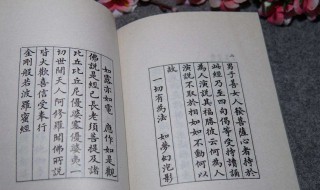 男子善女人發菩薩心者持於
此經乃至四句偈等受持讀誦
為人演說其福勝彼云何為人
演說不取於相如如不動何以
故
一切有為法 如夢幻泡影
如露亦如電 應作如是觀
佛說是經已長老須菩提及諸
比丘比丘尼優婆塞優婆夷一
切世間天人阿修羅聞佛所說
皆大歡喜信受奉行
金剛般若波羅蜜經